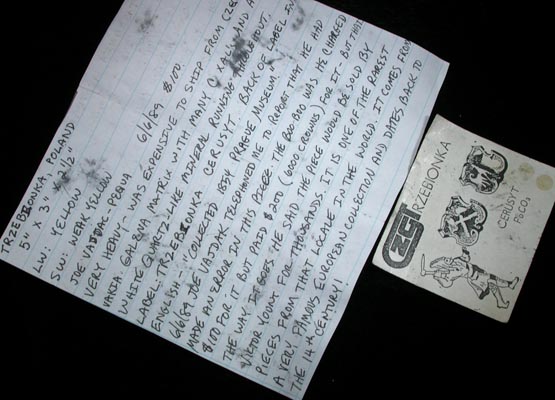 TRZEBIONKA, POLAND
5" X 3" X 2 1/2"
LW: YELLOW
SW: WEAK YELLOW
JOE VAJDAK PRAHA 6/6/89 $100.
VERY HEAVY. WAS EXPENSIVE TO SHIP FROM
GALENA MATRIX WITH MANY AND
WHITE QUARTZ LIKE MINERAL RUNNING THROUGHOUT.
LABEL: TRZEBIONKA CERUSYT. BACK OF LABEL IN
ENGLISH: "COLLECTED 1834 PRAGUE MUSEUM."
6/6/89 JOE VAJDAK TELEPHONED ME TO REPORT THAT HE HAD
MADE AN ERROR IN THIS PIECE. THE BOO BOO WAS HE CHARGED
$100 FOR IT BUT PAID $200 (6000 CROWNS) FOR IT. BUT THAT'S
THE WAY IT GOES. HE SAID THE PIECE WOULD BE SOLD BY
VICTOR YOUNT FOR THOUSANDS. IT IS ONE OF THE RAREST
PIECES FROM THAT LOCALE IN THE WORLD. IT COMES FROM
A VERY FAMOUS EUROPEAN COLLECTION AND DATES BACK TO
THE 14TH CENTURY!
TRZEBIONKA
CERUSYT
PbCO3